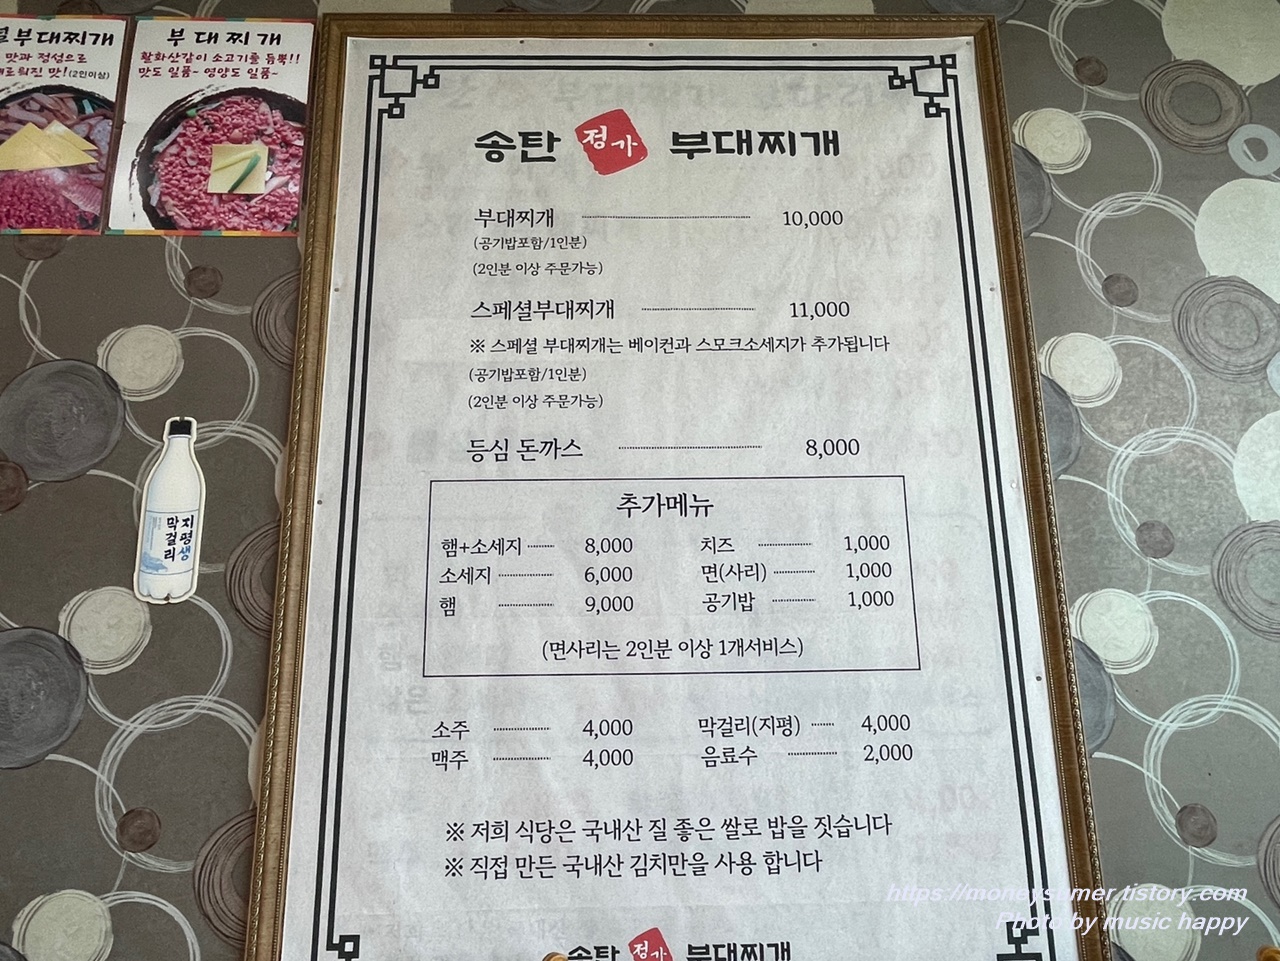 부대찌개
맛과 정성으로
맛! (2인이상)
부대찌개
활화산같이 소고기를 듬뿍!!
맛도 일품~ 영양도 일품~
송탄 정가 부대찌개
부대찌개 10,000
(공기밥포함/1인분)
(2인분 이상 주문가능)
스페셜부대찌개 11,000
※ 스페셜 부대찌개는 베이컨과 스모크소세지가 추가됩니다
(공기밥포함/1인분)
(2인분 이상 주문가능)
등심 돈까스 8,000
추가메뉴
햄+소세지 8,000 치즈 1,000
소세지 6,000 면(사리) 1,000
햄 9,000 공기밥 1,000
(면사리는 2인분 이상 1개서비스)
소주 4,000 막걸리(지평) 4,000
맥주 4,000 음료수 2,000
※ 저희 식당은 국내산 질 좋은 쌀로 밥을 짓습니다
※ 직접 만든 국내산 김치만을 사용 합니다
송탄 정가 부대찌개
지평생
막걸리
https://moneysumer.tistory.com
Photo by music happy